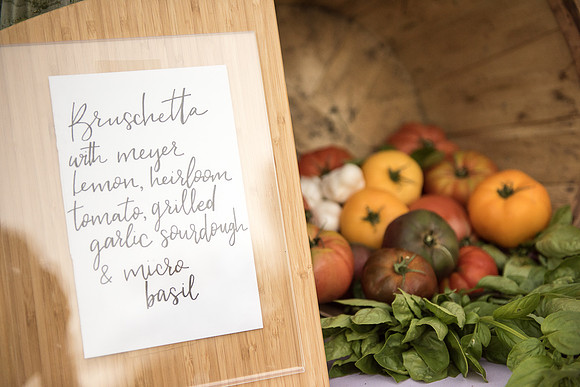 Bruschetta
with meyer
lemon, heirloom
tomato, grilled
garlic sourdough
& micro
basil